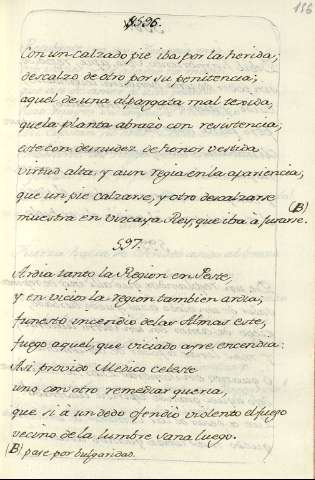 156
596.
Con un calzado pie iba por la herida;
descalzo de otro por su penitencia;
aquel de una alpargata mal texida,
que la planta abrazò con resistencia;
este con desnudez de honor vestida
virtud alta, y aun regia en la apariencia,
que un pie calzarse, y otro descalzarse
muestra en Vizcaya Rey, que iba à jurarse. (B)
597.
Ardia tanto la Region en Peste,
y en vicios la region tambien ardia;
funesto incendio de las Almas este,
fuego aquel, que viciado ayre encendia:
Asi provido Medico celeste
uno con otro remediar queria,
que si à un dedo ofendiò violento el fuego
vecino de la lumbre sana luego.
(B) pase por vulgaridad.